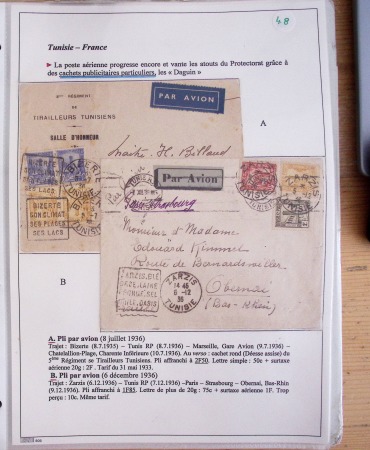 48
Tunisie – France
► La poste aérienne progresse encore et vante les atouts du Protectorat grâce à
des cachets publicitaires particuliers, les « Daguin »
RÉGIMENT
DE
TIRAILLEURS TUNISIENS
SALLE D'HONNEUR
PAR AVION
A
Maître H. Billaud
Par Avion
BIZERTE
SON CLIMAT
SES PLAGES
SES LACS
BIZERTE
TUNISIE
BIZERTE
SON CLIMAT
DES PLAGES
DES LACS
TUNISIE
Strasbourg
Monsieur et Madame
Edouard
Route de Bernardswiller
Obernai
(Bas-Rhin)
B
ZARZIS
14 45
6 -12
36
TUNISIE
A. Pli par avion (8 juillet 1936)
Trajet : Bizerte (8.7.1935) – Tunis RP (8.7.1936) – Marseille, Gare Avion (9.7.1936) –
Chatelaillon-Plage, Charente Inférieure (10.7.1936). Au verso : cachet rond (Déesse assise) du
5ème Régiment se Tirailleurs Tunisiens. Pli affranchi à 2F50. Lettre simple : 50c + surtaxe
aérienne 20g : 2F . Tarif du 31 mai 1933.
B. Pli par avion (6 décembre 1936)
Trajet : Zarzis (6.12.1936) – Tunis RP (7.12.1936) –Paris – Strasbourg – Obernai, Bas-Rhin
(9.12.1936). Pli affranchi à 1F85. Lettre de plus de 20g : 75c + surtaxe aérienne 1F. Trop
perçu : 10c. Même tarif.